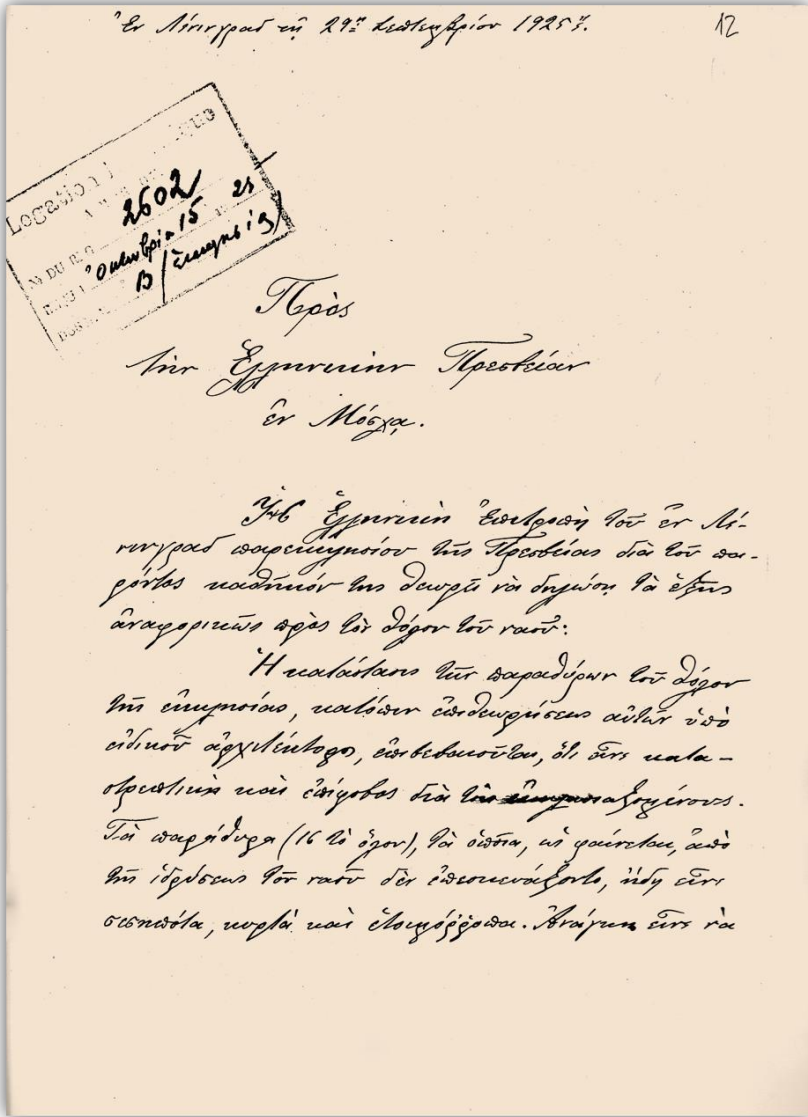 Ἐν Λένινγραδ τῇ 29ῃ Σεπτεμβρίου 1925
12
Legation
2602
Ὀκτωβρίου 15 25
Β
Πρὸς
τὴν Ἑλληνικὴν Πρεσβείαν
ἐν Μόσχᾳ.
Ἡ Ἑλληνικὴ Ἐπιτροπὴ τοῦ ἐν Λέ-
νινγραδ παρεκκλησίου τῆς Πρεσβείας διὰ τοῦ πα-
ρόντος καθῆκόν της θεωρεῖ νὰ δηλώσῃ τὰ ἑξῆς
ἀναφορικῶς πρὸς τὸν θόλον τοῦ ναοῦ:
Ἡ κατάστασις τῶν παραθύρων τοῦ θόλου
τῆς ἐκκλησίας, κατόπιν ἐπιθεωρήσεως αὐτῶν ὑπὸ
εἰδικοῦ ἀρχιτέκτονος, ἐπιβεβαιοῦται, ὅτι εἶνε κατα-
στρεπτικὴ καὶ ἐπίφοβος διὰ
Τὰ παράθυρα (16 τὸ ὅλον), τὰ ὁποῖα, ὡς φαίνεται, ἀπὸ
τῆς ἱδρύσεως τοῦ ναοῦ δὲν ἐπεσκευάζοντο, ἤδη εἶνε
σεσηπότα, κυρτὰ καὶ ἑτοιμόρροπα. Ἀνάγκη εἶνε νὰ